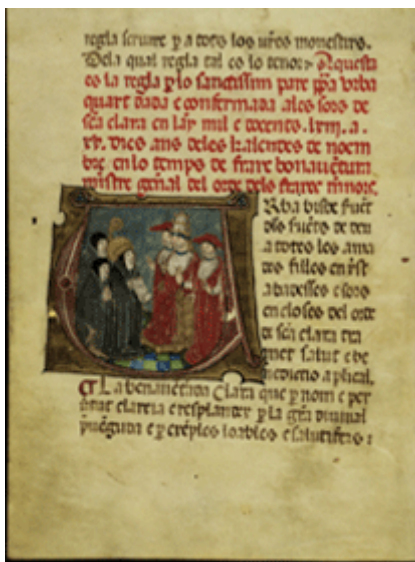 regla seruire y a totes los vr̃es monestirs.
Dela qual regla tal es lo tenor Aquesta
es la regla p lo sanctissim pare ppa vrba
quart dada e confermada a les sors de
sc̃a clara en lany mil e docents. lxiii. a.
xv. dies ans deles kalendes de noem
bre en lo temps de frare bonauentura
ministre gen̄al del orde dels frares menors.
Vrba bisbe
a totes los ama
des filles en x̃st
abadesses e sors
encloses del orde
de sc̃a clara
salut e be
nediccio aplical.
La Clara que p nom e per
claredat e resplandor p la gr̃a diuinal
e p exẽples loables e